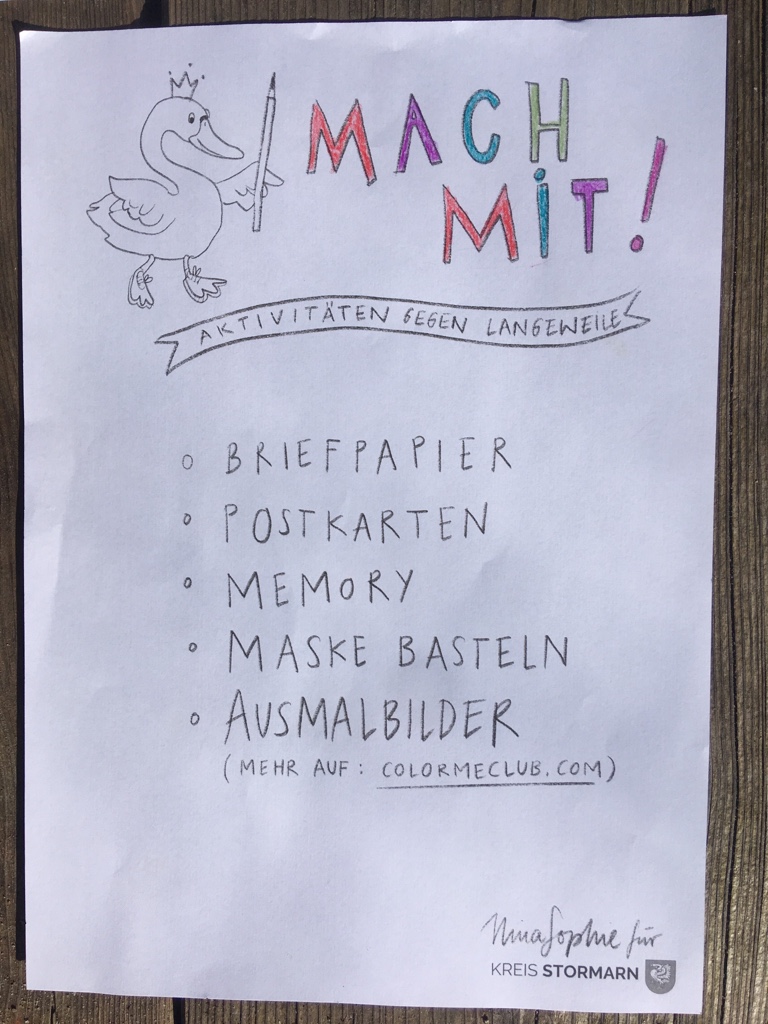 MACH
MiT!
AKTIVITÄTEN GEGEN LANGEWEILE
BRIEFPAPIER
POSTKARTEN
MEMORY
MASKE BASTELN
AUSMALBILDER
(MEHR AUF: COLORMECLUB.COM)
NinaSophie für
KREIS STORMARN